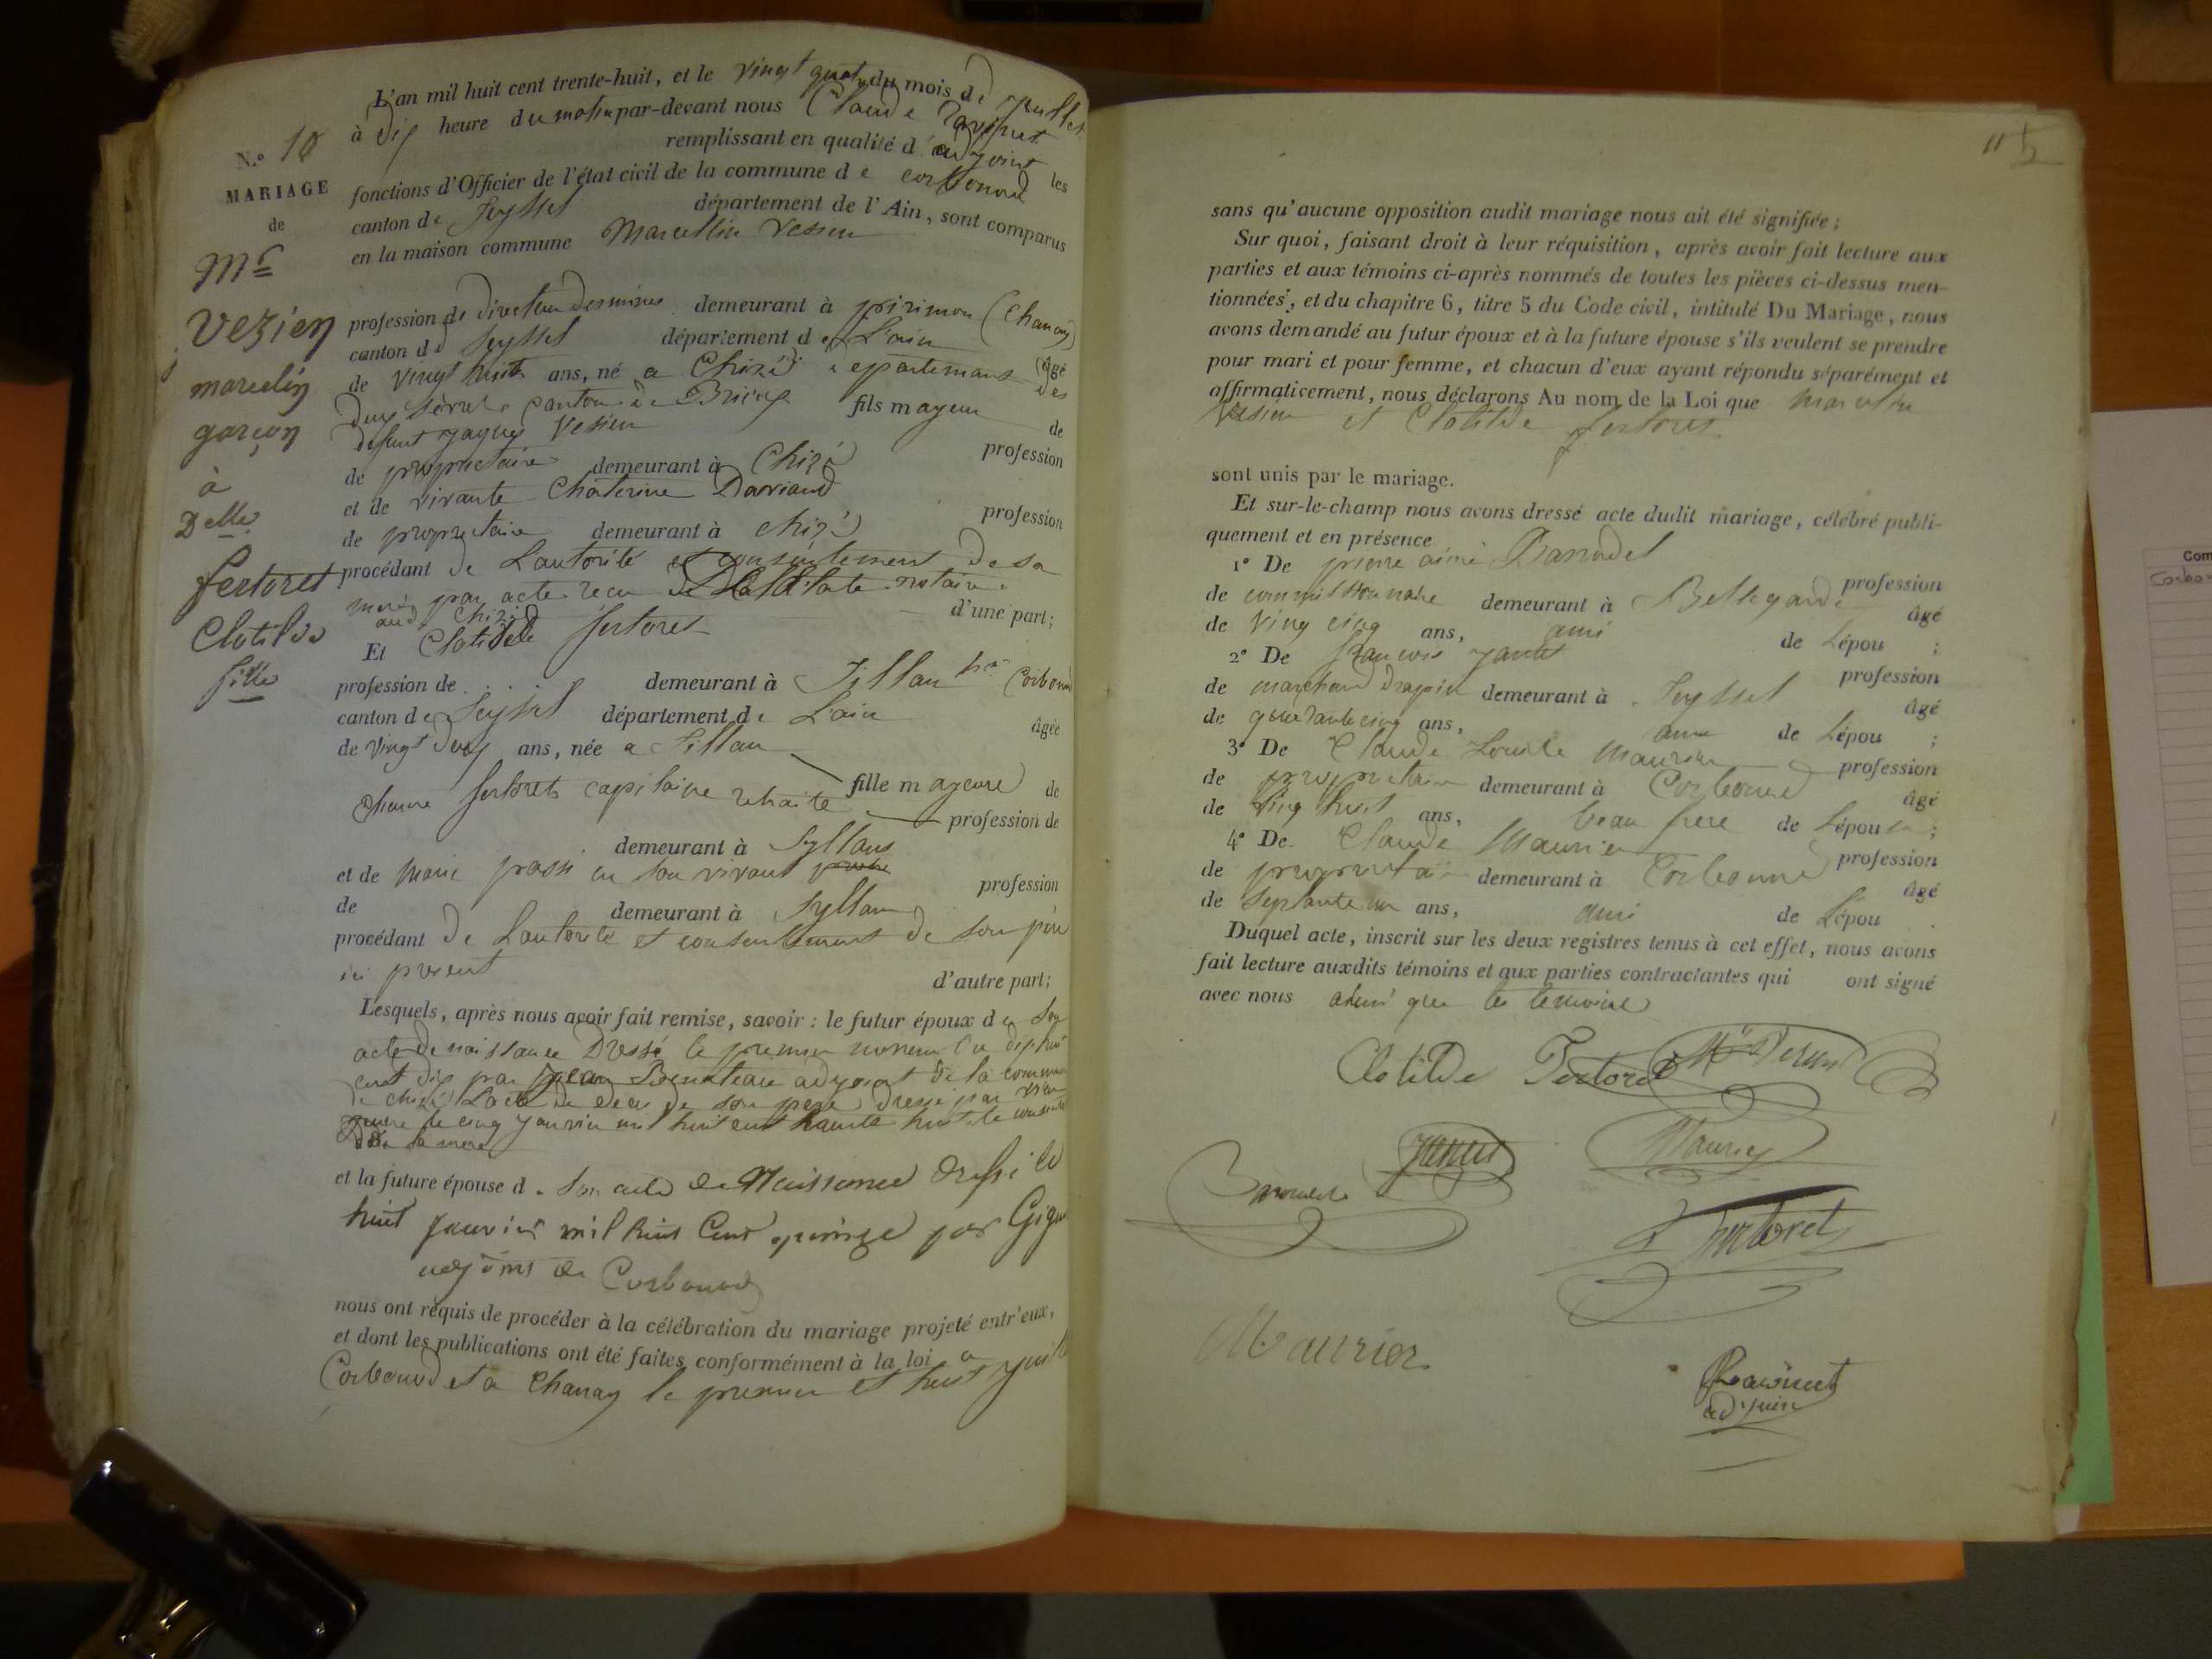 L'an mil huit cent trente-huit, et le vingt quatre du mois de juillet
à dix heure du matin par-devant nous Claude Ravinet
remplissant en qualité d'adjoint les
N.° 10
fonctions d'Officier de l'état civil de la commune de corbonod
MARIAGE
canton de Seyssel département de l'Ain, sont comparus
de
en la maison commune Marcellin Vesien
Mr
Vezien
profession de directeur des mines demeurant à pirimon (Chanay)
canton de Seyssel département de L'ain âgé
marcelin
de vingt huit ans, né a Chizé département des
deux sèvres canton de Brioux fils mageur de
garçon
defunt jaques Vesien profession
à
de propriétaire demeurant à Chizé
et de vivante Chaterine Daviaud profession
Delle
de propriétaire demeurant à chizé
fertoret
procédant de L'autorité et consentement de sa
mere par acte recu de notaire
Chizé d'une part;
Clotilde
Et Clotilde fertoret
fille
profession de demeurant à Sillan Corbonod
canton de Seyssel département de L'ain
de vingt deux ans, née a Sillan âgée
fille mageure de
fertoret capitaine retraité profession de
demeurant à Syllans
et de Marie passi en son vivant profession
de demeurant à Syllan
procédant de Lautorité et consentement de son père
ici present d'autre part;
Lesquels, après nous avoir fait remise, savoir : le futur époux de son
acte de naissance Dressé le premier
cent dix par jean Benateau adjoint de la commune
de chizé L'acte de deces de son pere dressé par
le cinq janvier mil huit cent trente huit le
de sa mere
et la future épouse de son acte de Naissance dressé le
huit janvier mil huit Cent quinze par
adjoint de Corbonod
nous ont requis de procéder à la célébration du mariage projeté entr'eux,
et dont les publications ont été faites conformément à la loi a
Corbonod et a Chanay le premier et huit juillet
115
sans qu'aucune opposition audit mariage nous ait été signifiée;
Sur quoi, faisant droit à leur réquisition, après avoir fait lecture aux
parties et aux témoins ci-après nommés de toutes les pièces ci-dessus men-
tionnées, et du chapitre 6, titre 5 du Code civil, intitulé Du Mariage, nous
avons demandé au futur époux et à la future épouse s'ils veulent se prendre
pour mari et pour femme, et chacun d'eux ayant répondu séparément et
affirmativement, nous déclarons Au nom de la Loi que marcelin
Vesien et Clotilde fertoret
sont unis par le mariage.
Et sur-le-champ nous avons dressé acte dudit mariage, célébré publi-
quement et en présence
1° De pierre aimé profession
de commissionnaire demeurant à Bellegarde âgé
de ving cinq ans, ami de Lépou ;
2° De francois profession
de marchand drapier demeurant à Seyssel âgé
de quarante cinq ans, ami de Lépou ;
3° De Claude Maurier profession
de propriétaire demeurant à Corbonod âgé
de ving huit ans, beau frere de Lépou ;
4° De Claude Maurier profession
de propriétai demeurant à Corbonod âgé
de septante un ans, ami de Lépou .
Duquel acte, inscrit sur les deux registres tenus à cet effet, nous avons
fait lecture auxdits témoins et aux parties contractantes qui ont signé
avec nous ainsi que les temoins
Clotilde Fertoret
Maurier
fertoret
Maurier
Ravinet
adjoint
Com